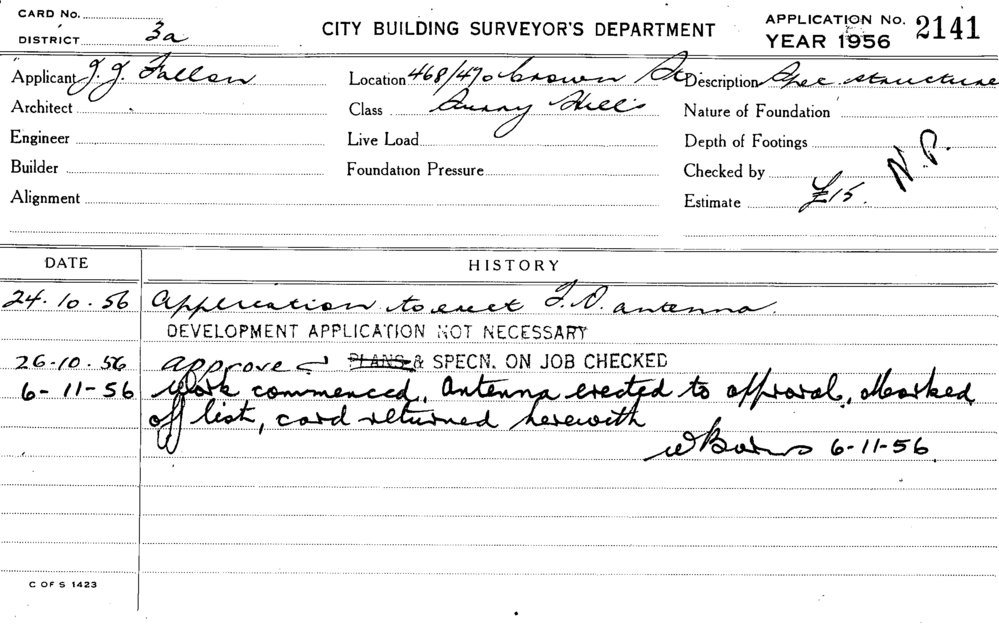 CARD No.
DISTRICT 3a
CITY BUILDING SURVEYOR'S DEPARTMENT
APPLICATION No. 2141
YEAR 1956
Applicant J. J. Fallon
Location 468/470 Crown St
Description Spec. structure
Architect
Class Surry Hills
Nature of Foundation
Engineer
Live Load
Depth of Footings
Builder
Foundation Pressure
Checked by N.P.
Alignment
Estimate £15.
DATE
HISTORY
24.10.56 Application to erect T.V. antenna.
DEVELOPMENT APPLICATION NOT NECESSARY
26-10.56 approved PLANS & SPECN. ON JOB CHECKED
6-11-56 Work commenced, Antenna erected to approval, Marked
off list, card returned herewith
6-11-56.
C OF S 1423